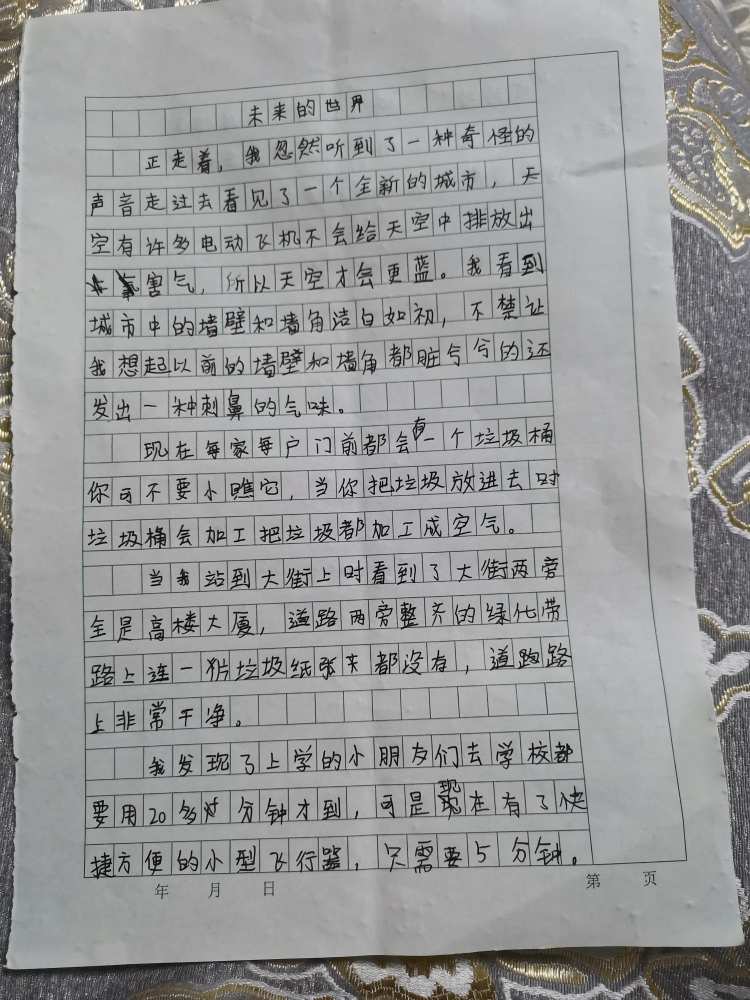 未来的世界
正走着，我忽然听到了一种奇怪的
声音走过去看见了一个全新的城市，天
空有许多电动飞机不会给天空中排放出
害气，所以天空才会更蓝。我看到
城市中的墙壁和墙角洁白如初，不禁让
我想起以前的墙壁和墙角都脏兮兮的还
发出一种刺鼻的气味。
现在每家每户门前都会有一个垃圾桶
你可不要小瞧它，当你把垃圾放进去时
垃圾桶会加工把垃圾都加工成空气。
当我站到大街上时看到了大街两旁
全是高楼大厦，道路两旁整齐的绿化带
路上连一片垃圾纸张都没有，道路
上非常干净。
我发现了上学的小朋友们去学校都
要用20多分钟才到，可是现在有了快
捷方便的小型飞行器，只需要5分钟。
年 月 日 第 页